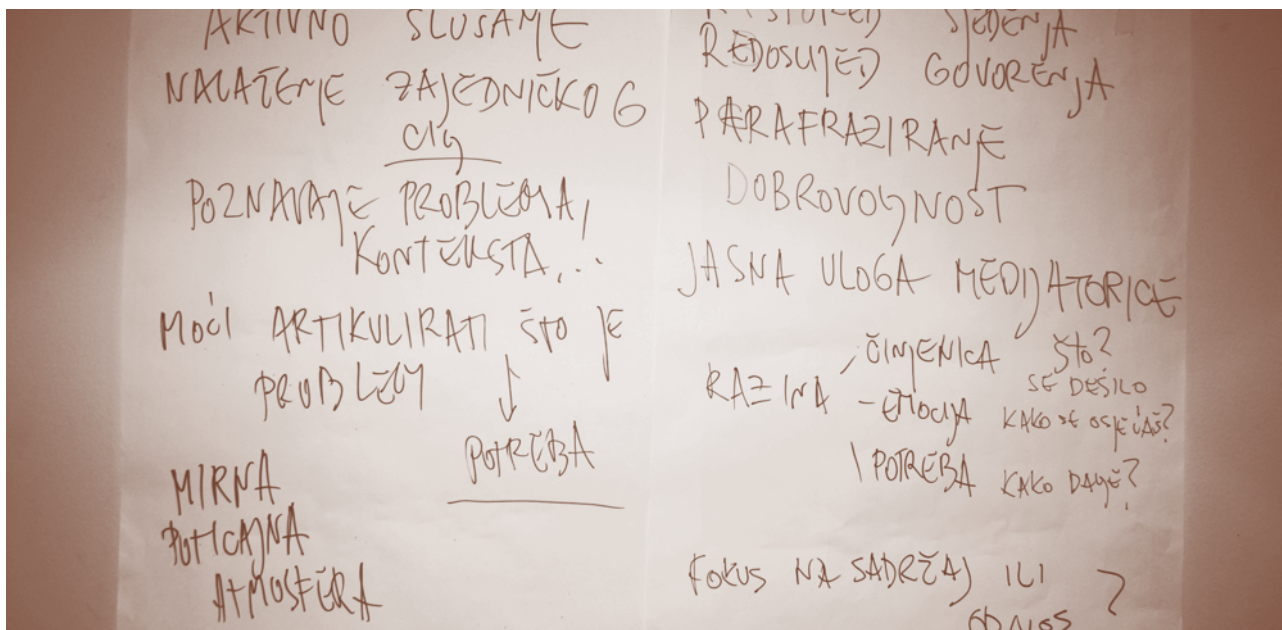 AKTIVNO SLUŠAME
NALAŽENJE ZAJEDNIČKOG
CILJ
POZNAVAJE PROBLEMA,
KONTEKSTA,...
MOĆI ARTIKULIRATI ŠTO JE
PROBLEM
POTREBA
MIRNA
POTICAJNA
ATMOSFERA
RASPORED SJEDENJA
REDOSLIJED GOVORENJA
PARAFRAZIRANJE
DOBROVOLJNOST
JASNA ULOGA MEDIJATORICE
RAZINA
, ČINJENICA ŠTO?
SE DEŠILO
- EMOCIJA KAKO SE OSJEĆAŠ?
\ POTREBA KAKO DALJE?
FOKUS NA SADRŽAJ ILI
ODNOS ?